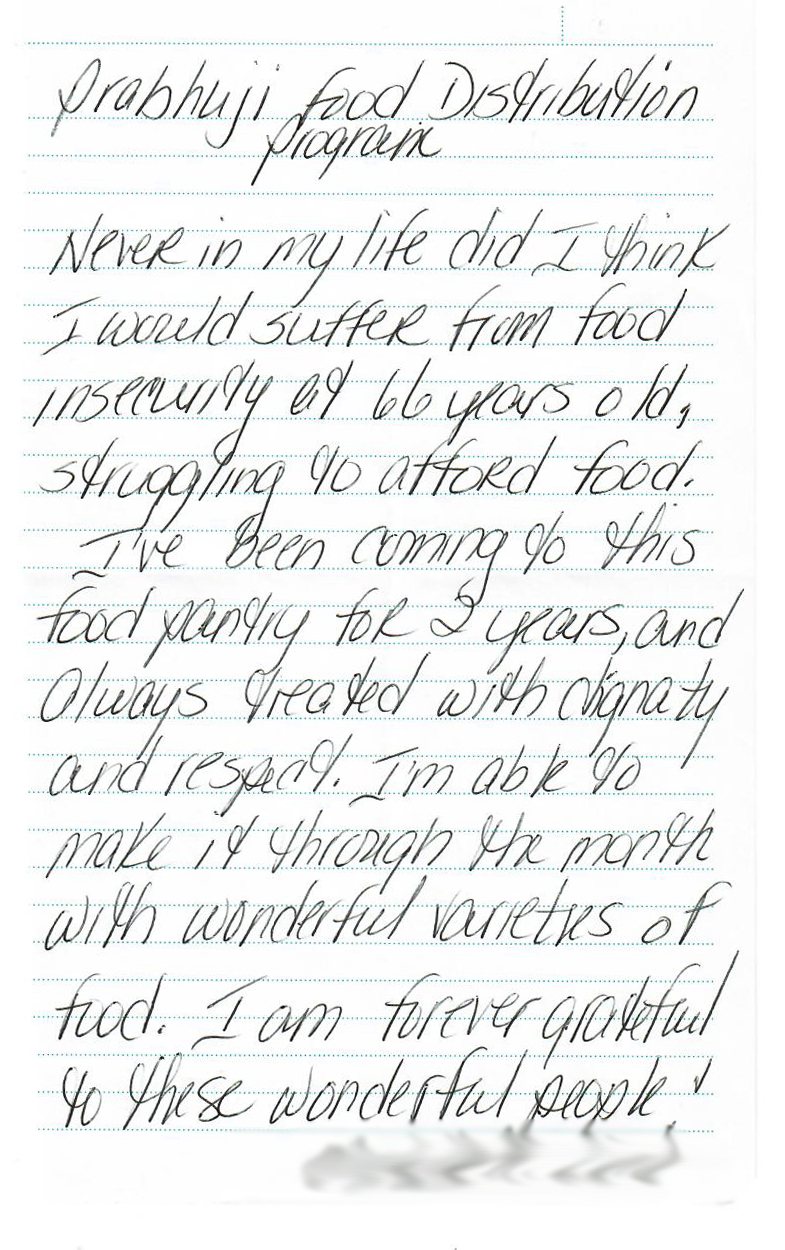 Prabhuji Food Distribution
Program
Never in my life did I think
I would suffer from food
insecurity at 66 years old,
struggling to afford food.
I've been coming to this
food pantry for 2 years, and
always treated with dignaty
and respect. I'm able to
make it through the month
with wonderful varieties of
food. I am forever grateful
to these wonderful people!